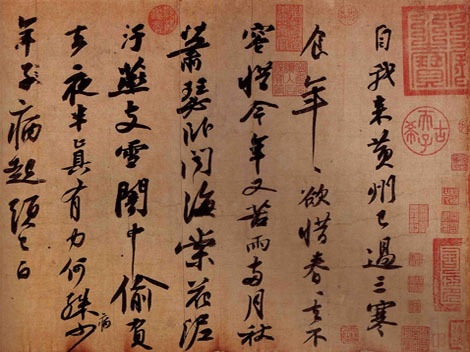 自我来黄州已過三寒
食年〻欲惜春〻去不
容惜今年又苦雨兩月秋
蕭瑟卧聞海棠花泥
汙燕支雪闇中偷負
去夜半真有力何殊病少
年子病起頭已白
古希天子